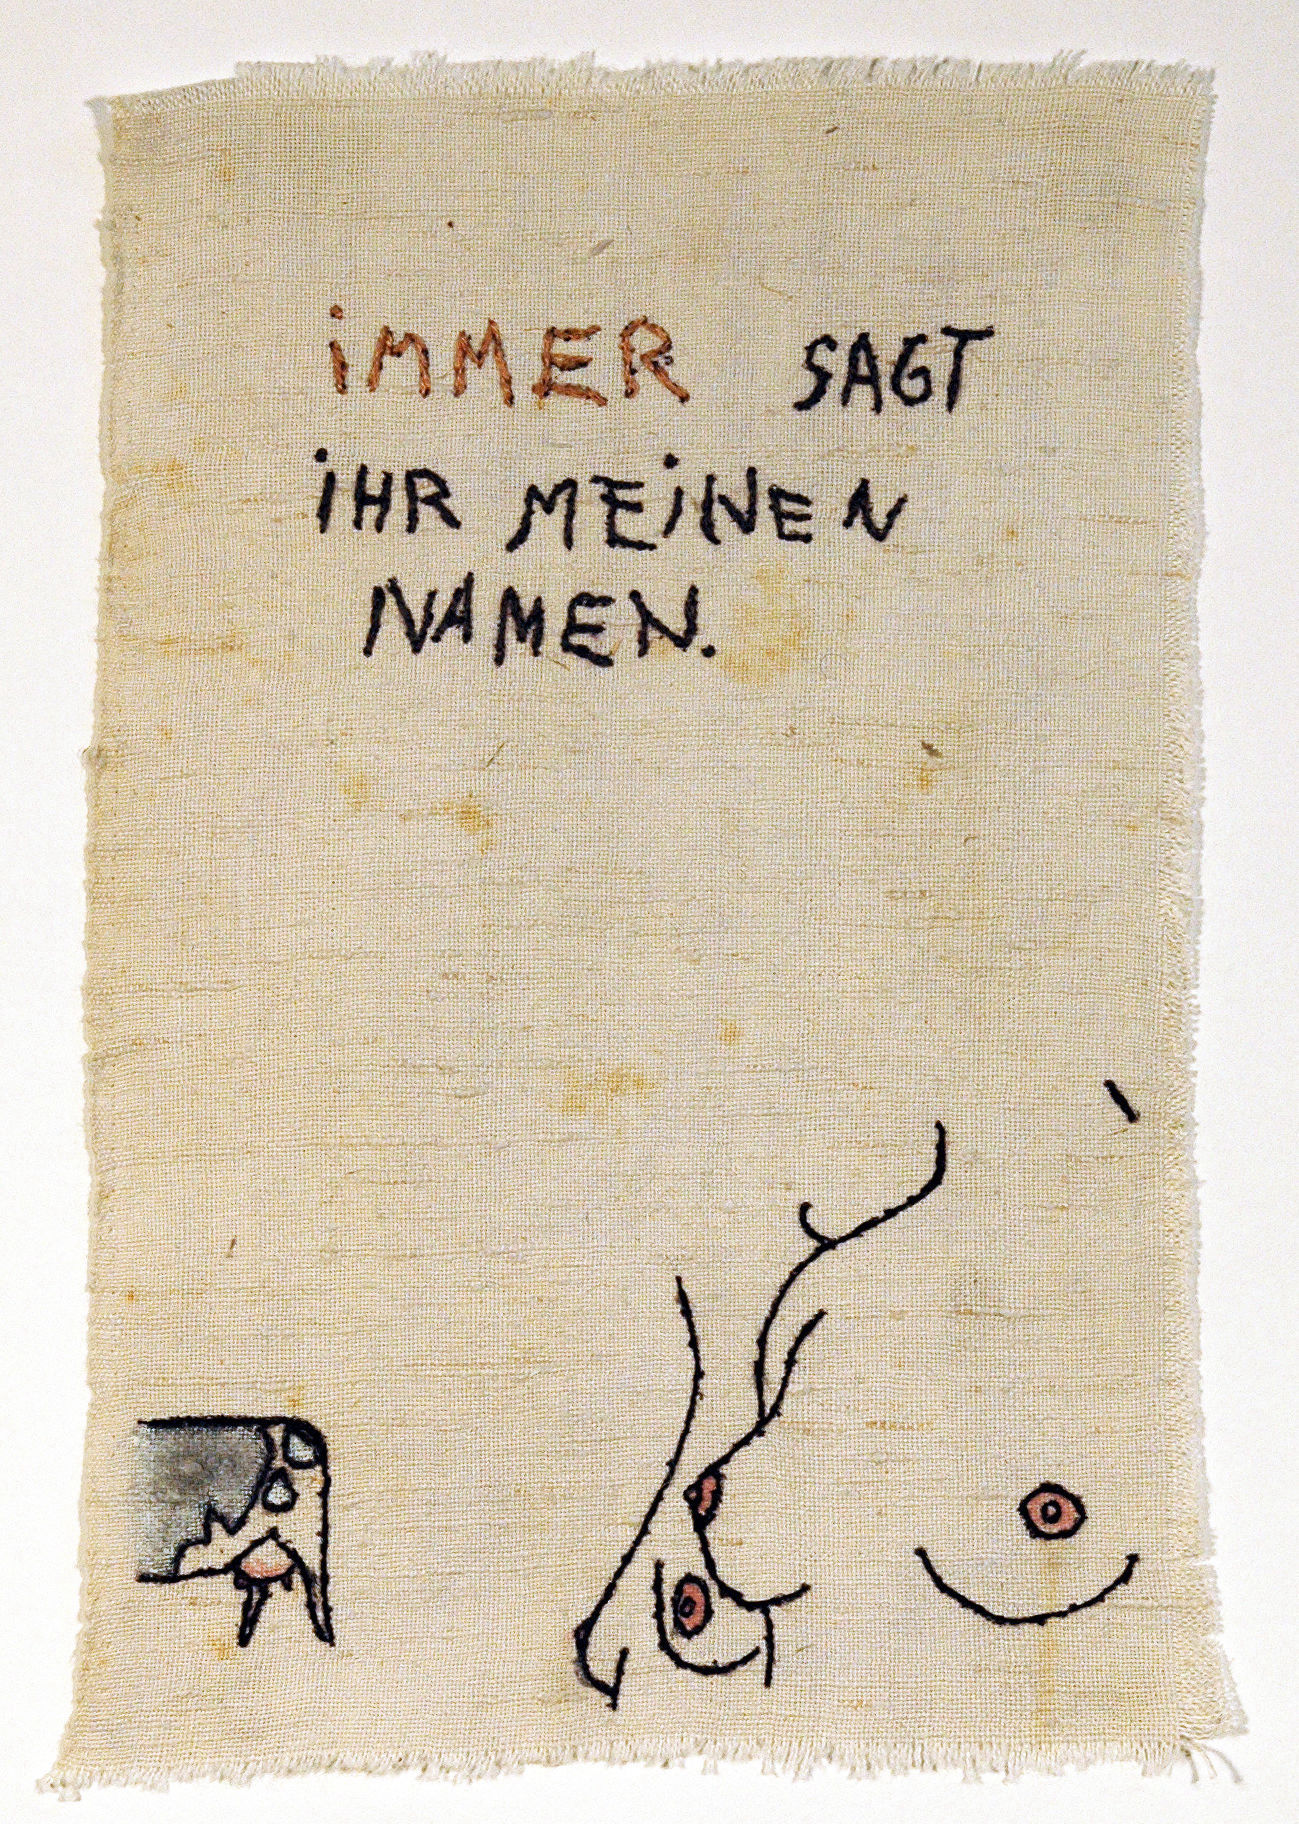 iMMER SAGT
iHR MEiNEN
NAMEN.